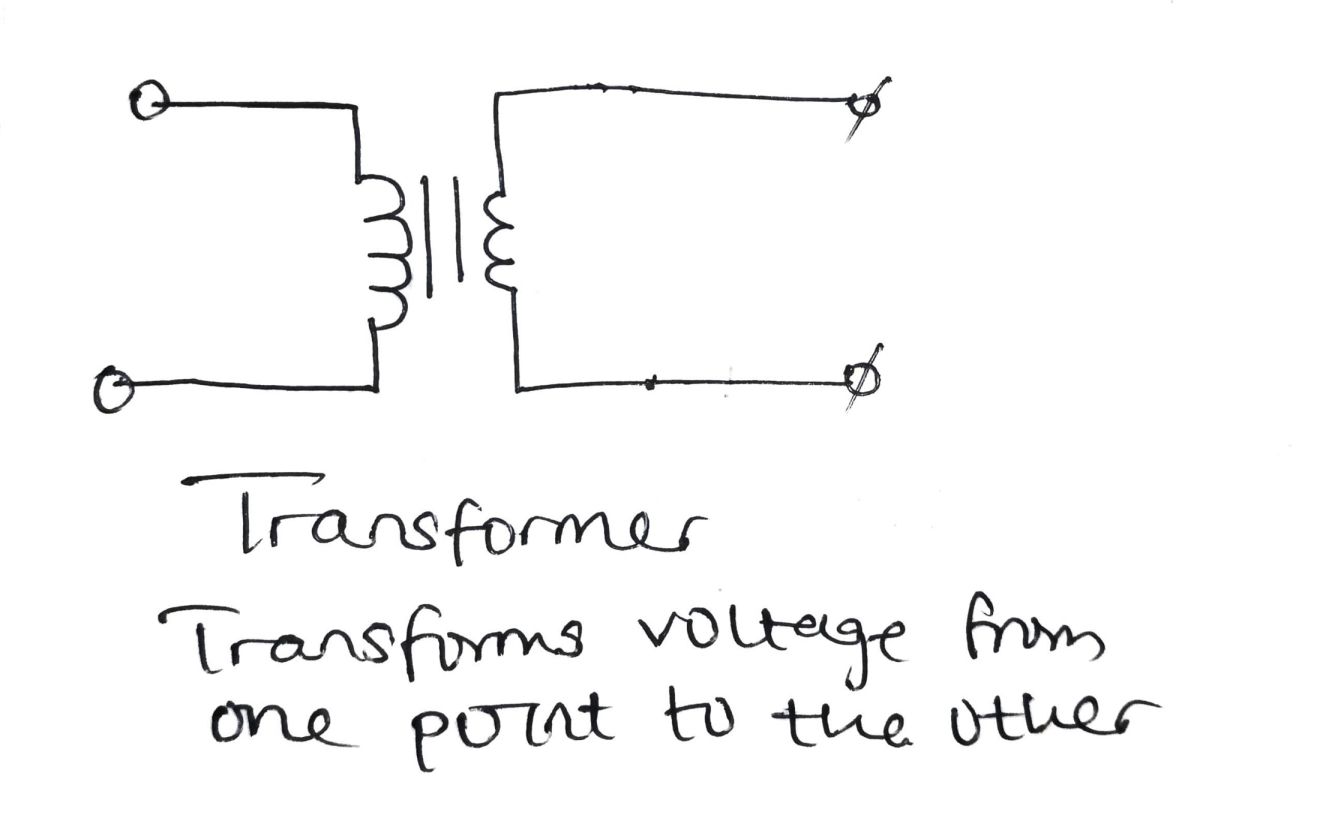 Transformer
Transforms voltage from
one point to the other